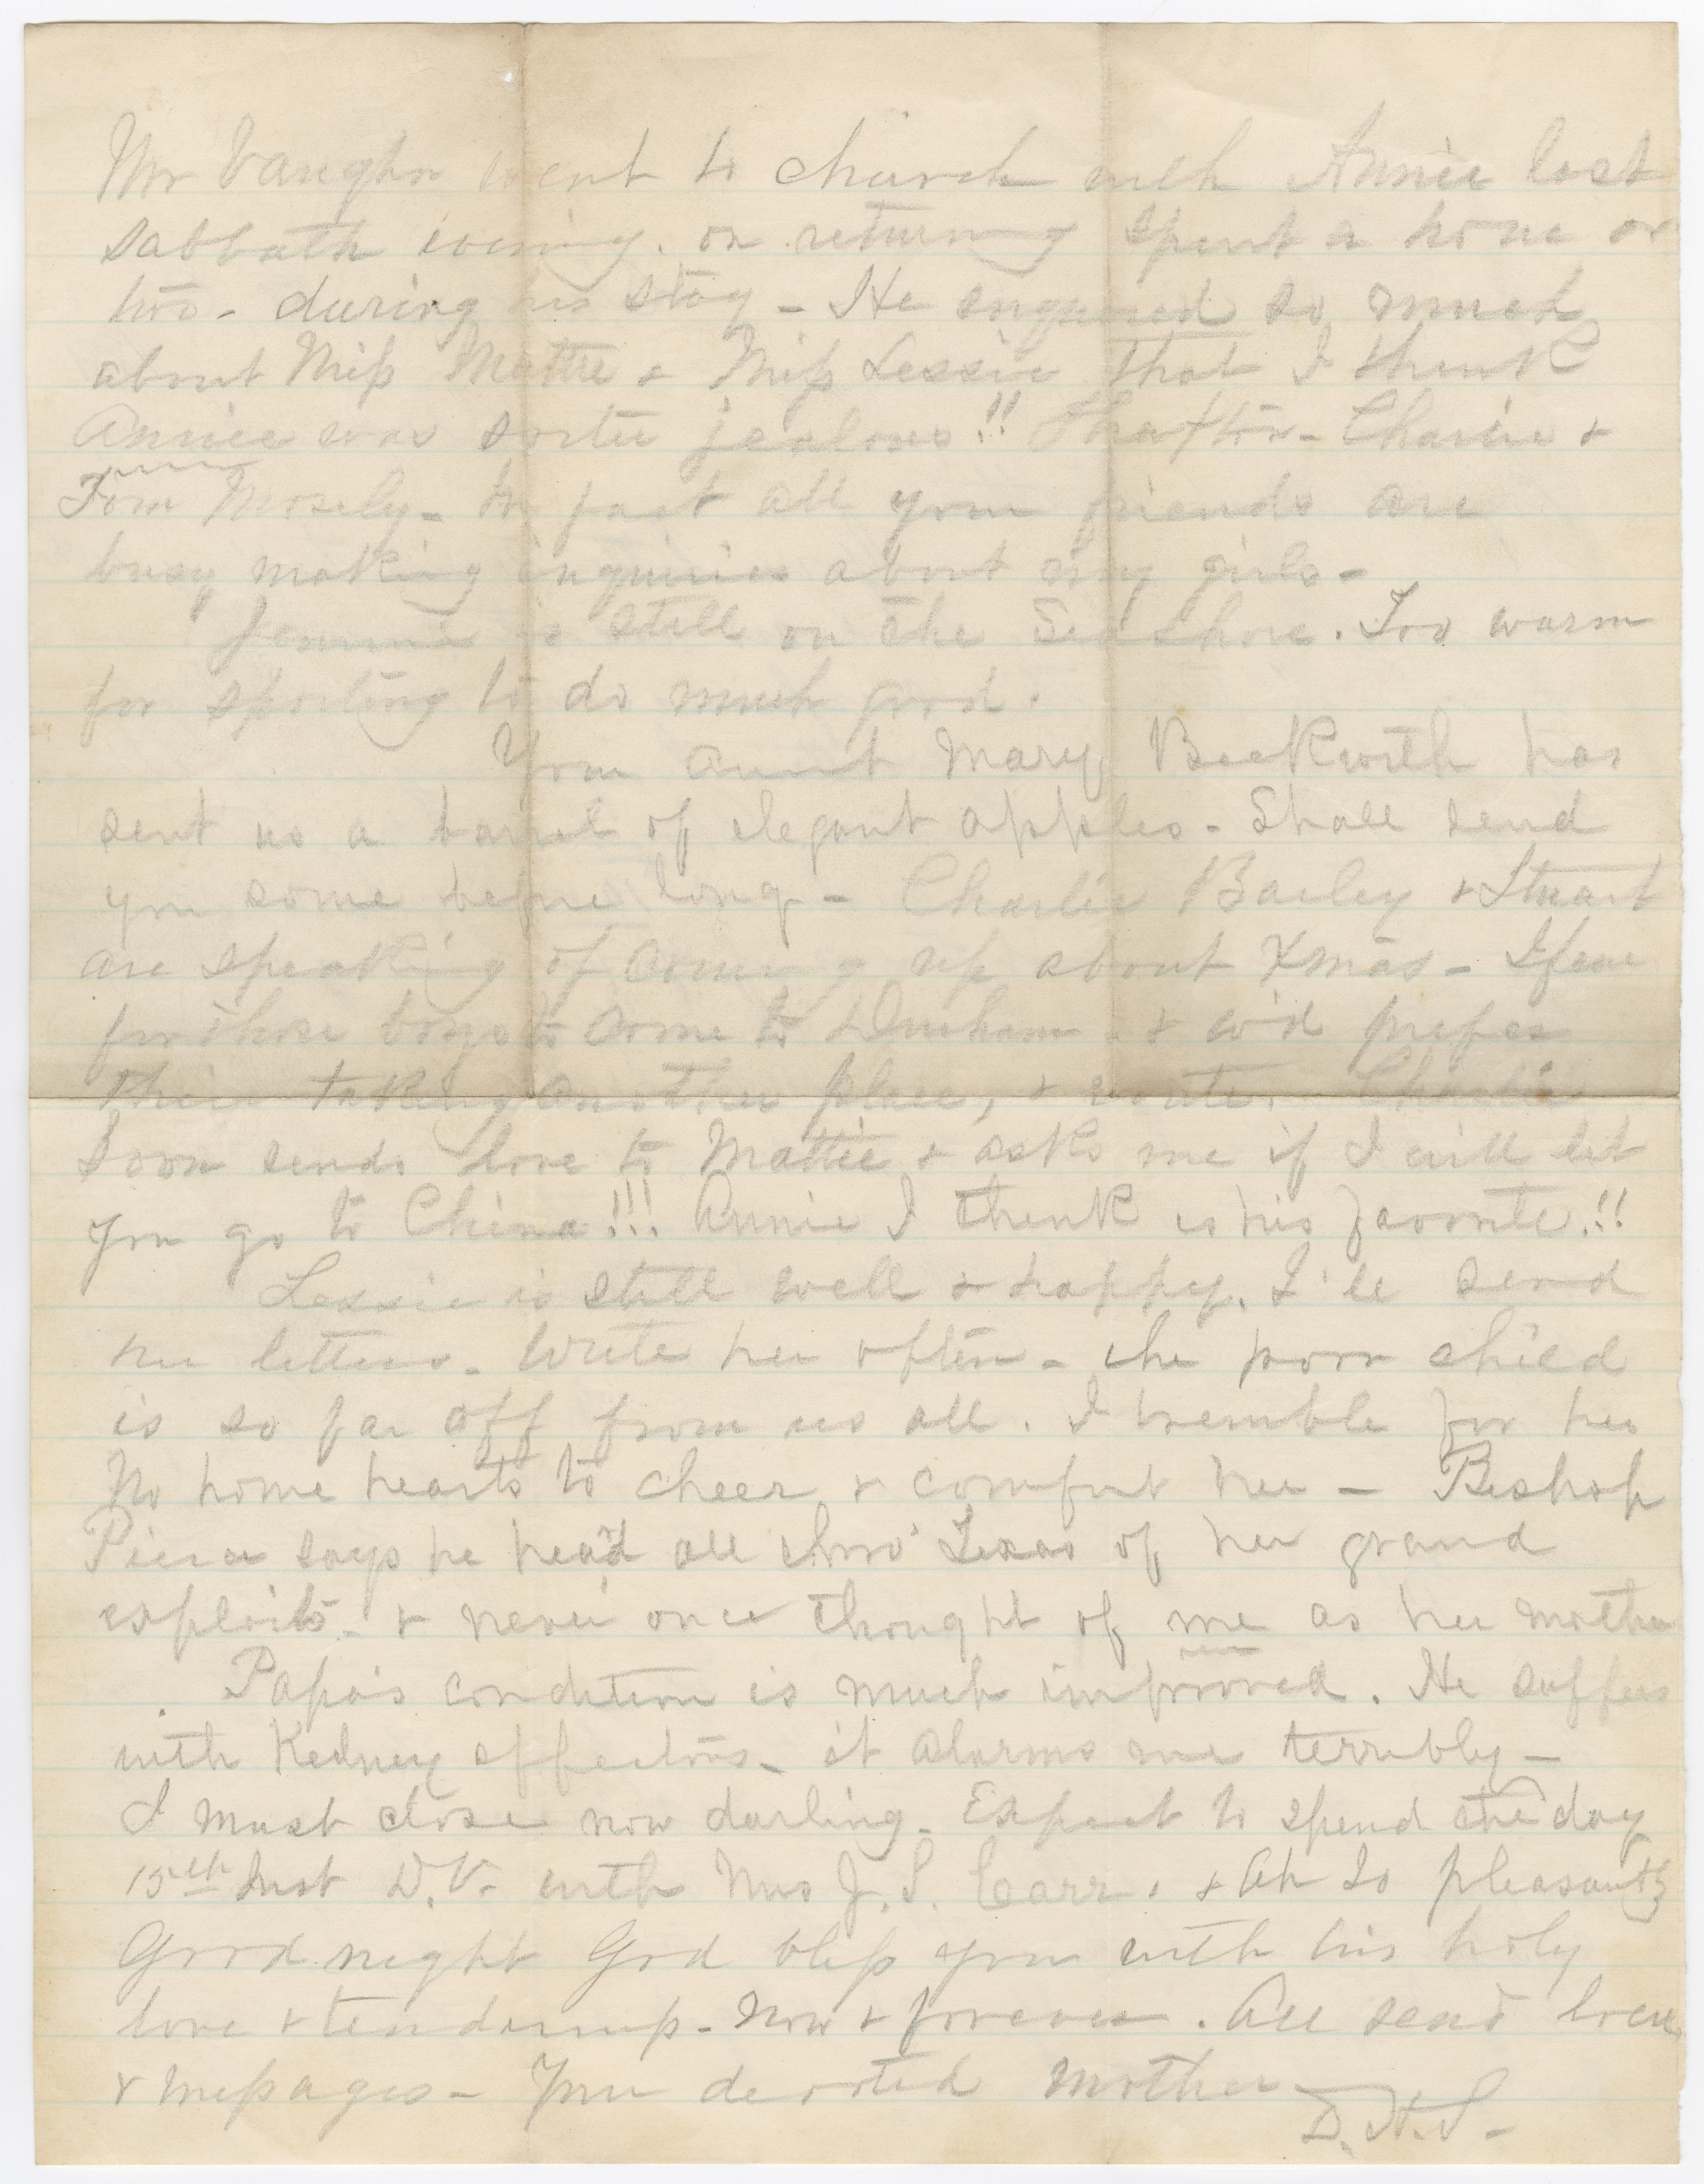 Mr Vaughn went to church with Annie last
Sabbath evening. on returning spent a hour or
two - during his stay - He enquired so much
about Miss Mattie & Miss Lessie that I think
Annie was sorter jealous!! Charlie &
Tom Mosely - In fact all your friends are
busy making inquiries about my girls -
is still on the Seashore. Too warm
for sporting to do much good.
Your Aunt Mary Beckwith has
sent us a barrel of elegant apples - Shall send
you some before long - Charlie Bailey & Stuart
are speaking of coming up about Xmas - I fear
for those boys to come to Durham - & wd prefer
their taking another place, & route. Charlie
Soon sends love to Mattie & asks me if I will let
you go to China!!! Annie I think is his favorite!!
Lessie is still well & happy. I'le send
her letters. Write her often - the poor child
is so far off from us all. I tremble for her
No home hearts to cheer & comfort her - Bishop
Pierce says he hea'd all thro' Texas of her grand
exploits - & never once thought of me as her mother
Papa's condition is much improved. He suffers
with Kedney affections - it alarms me terribly -
I must close now darling. Expect to spend the day
15th Inst D.V. with Mrs J. S. Carr. & Ah So pleasantly
Good night God bless you with his holy
love & tenderness - Now & forever. All send love
& messages - Your devoted Mother
D. H. S -